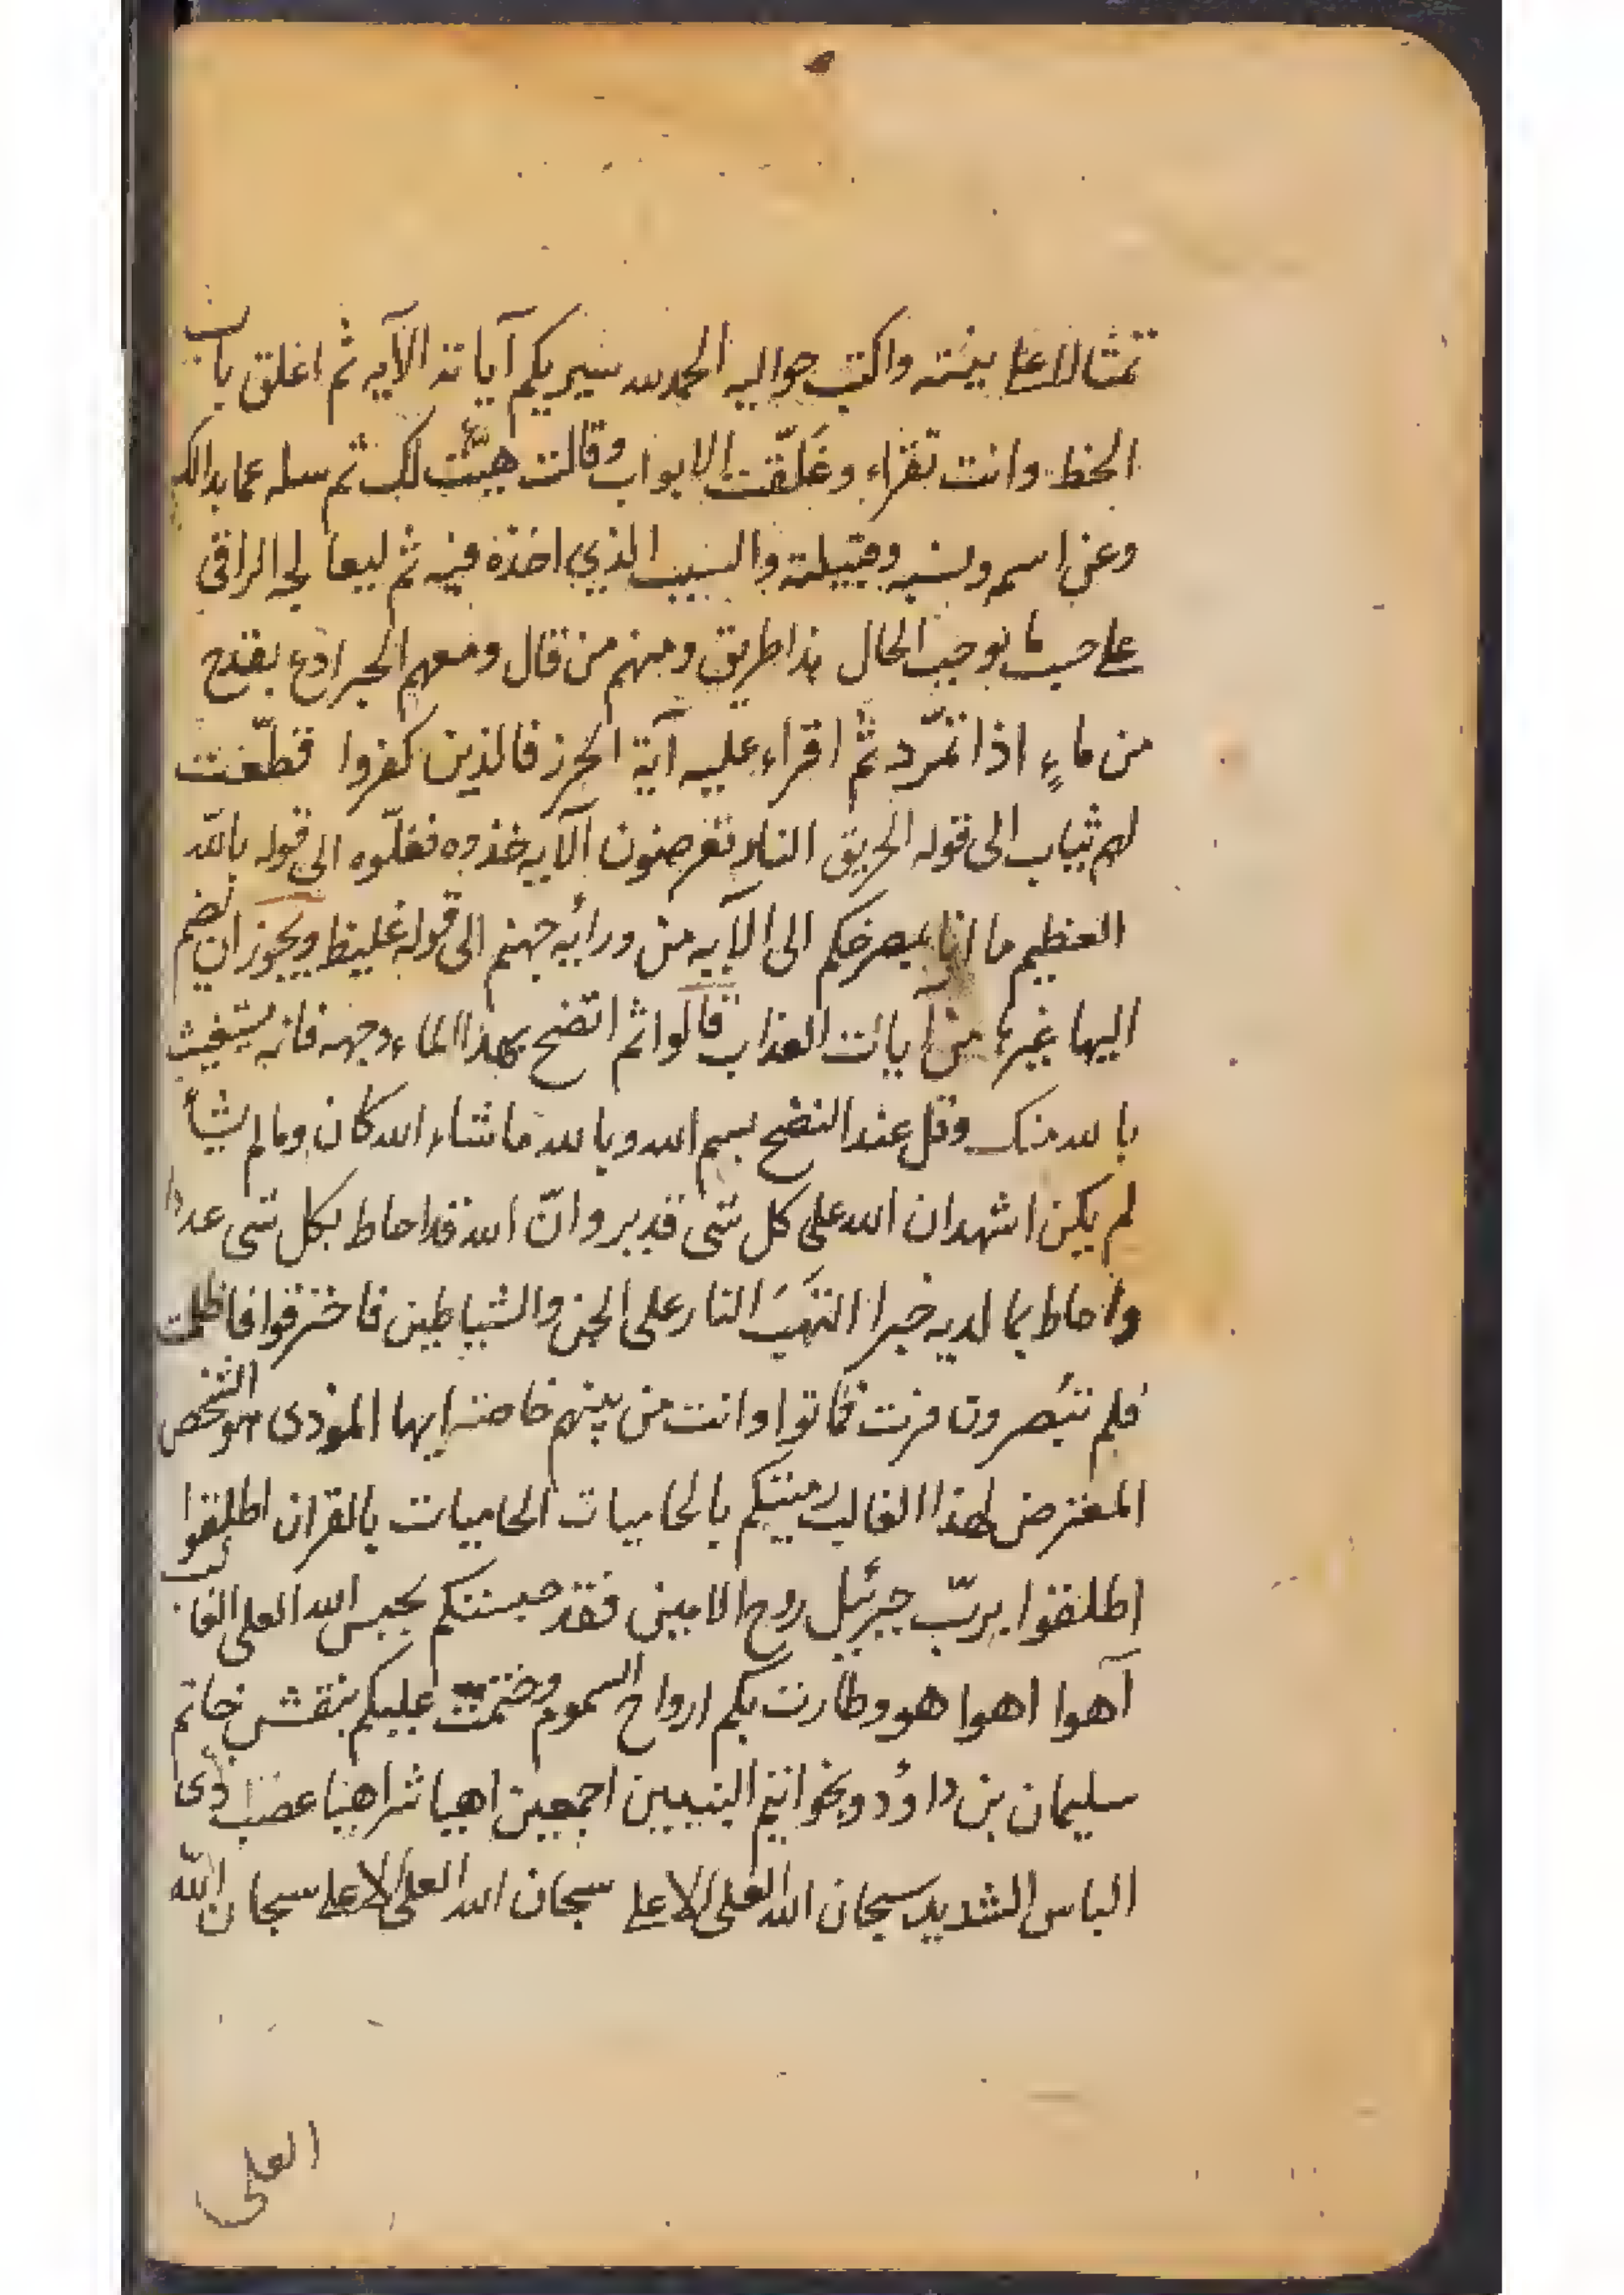 تمثالا على بيضته واكتب حواليه الحمد لله سيريكم آياته الآيه ثم اغلق باب
الخط وانت تقراء وغلّقت الابواب وقالت هيئت لك ثم سله عما بدالك
وعن اسمه ونسبه وقبيلته والسبب الذي اخذه فيه ثم ليعالجه الراقى
على حسب ما يوجب الحال هذا طريق ومنهم من قال ومعهم الحبر ادع بقدح
من ماءٍ اذا تمّرد ثم اقراء عليه آية الحرز فالذين كفروا قطّعت
لهم ثياب الى قوله الحريق النار تعرضون الآيه خذوه فغلّوه الى قوله بالله
العظيم ما انا بمصرخكم الى الآيه من ورائه جهنم الى قوله غليظ ويجوز ان تضم
اليها غيرها من آيات العذاب قالوا ثم اتضح بهذا الماء وجهه فانه يستغيث
بالله منك وقل عند النضح بسم الله وبالله ما شاء الله كان وما لم يشأ
لم يكن اشهد ان الله على كل شى قدير وانّ الله قد احاط بكل شى عددا
واحاط بما لديه خبرا التهَبَ النار على الجن والشياطين فاخترقوا فاظلمت
فلم تبصرون فرت فماتوا وانت من بينهم خاصة ايها الموذى هو الشخص
المعترض لهذا الغالب رميتكم بالحاميات الحاميات بالقران اطلقوا
اطلقوا بربّ جبرئيل روح الامين فقد حبستكم بحبس الله العلى الغالب
آهوا اهوا هو وطارت بكم ارواح السموم وختمت عليكم بنقش خاتم
سليمان بن داؤد وبخواتيم النبيين اجمعين اهيا شراهيا عضب ذى
الباس الشديد سبحان الله العلى الاعلى سبحان الله العلى الاعلى سبحان الله
العلى